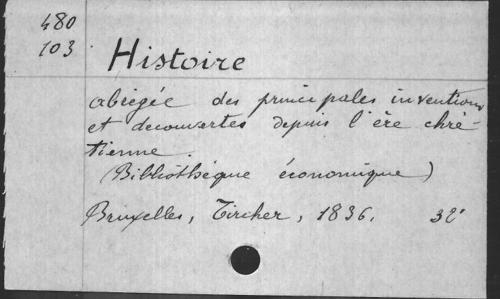 480
103
Histoire
abrégée des principales inventions
et decouvertes depuis l'ère chré-
tienne.
(Bibliothèque économique)
Bruxelles, Tircher, 1836. 32°